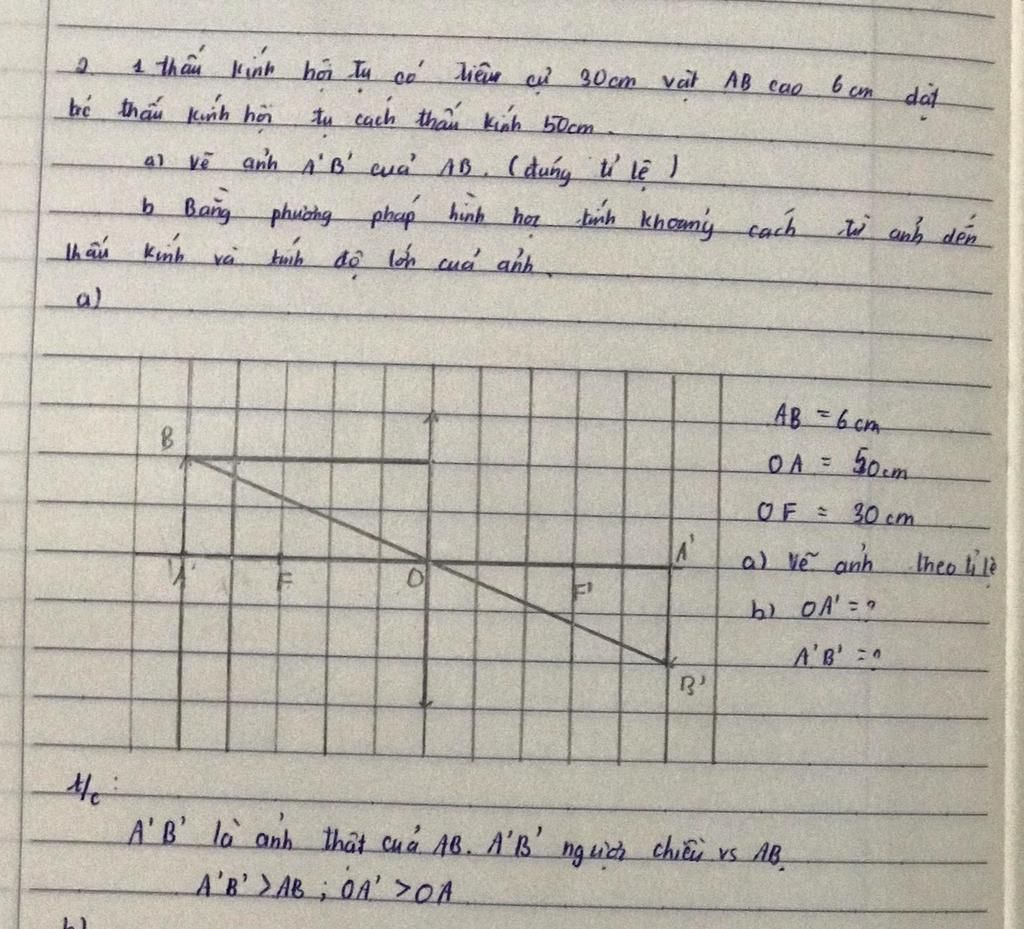 2. 1 thấu kính hội tụ có tiêu cự 30cm vật AB cao 6cm đặt
trc thấu kính hội tụ cách thấu kính 50cm.
a) vẽ ảnh A'B' của AB. (đúng tỉ lệ)
b Bằng phương pháp hình học tính khoảng cách từ ảnh đến
thấu kính và tính độ lớn của ảnh.
a)
B
A
F
O
F'
A'
B'
AB = 6cm
OA = 50cm
OF = 30cm
a) vẽ ảnh theo tỉ lệ
b) OA' = ?
A'B' = ?
t/c:
A'B' là ảnh thật của AB. A'B' ngược chiều vs AB.
A'B' > AB ; OA' > OA
b)